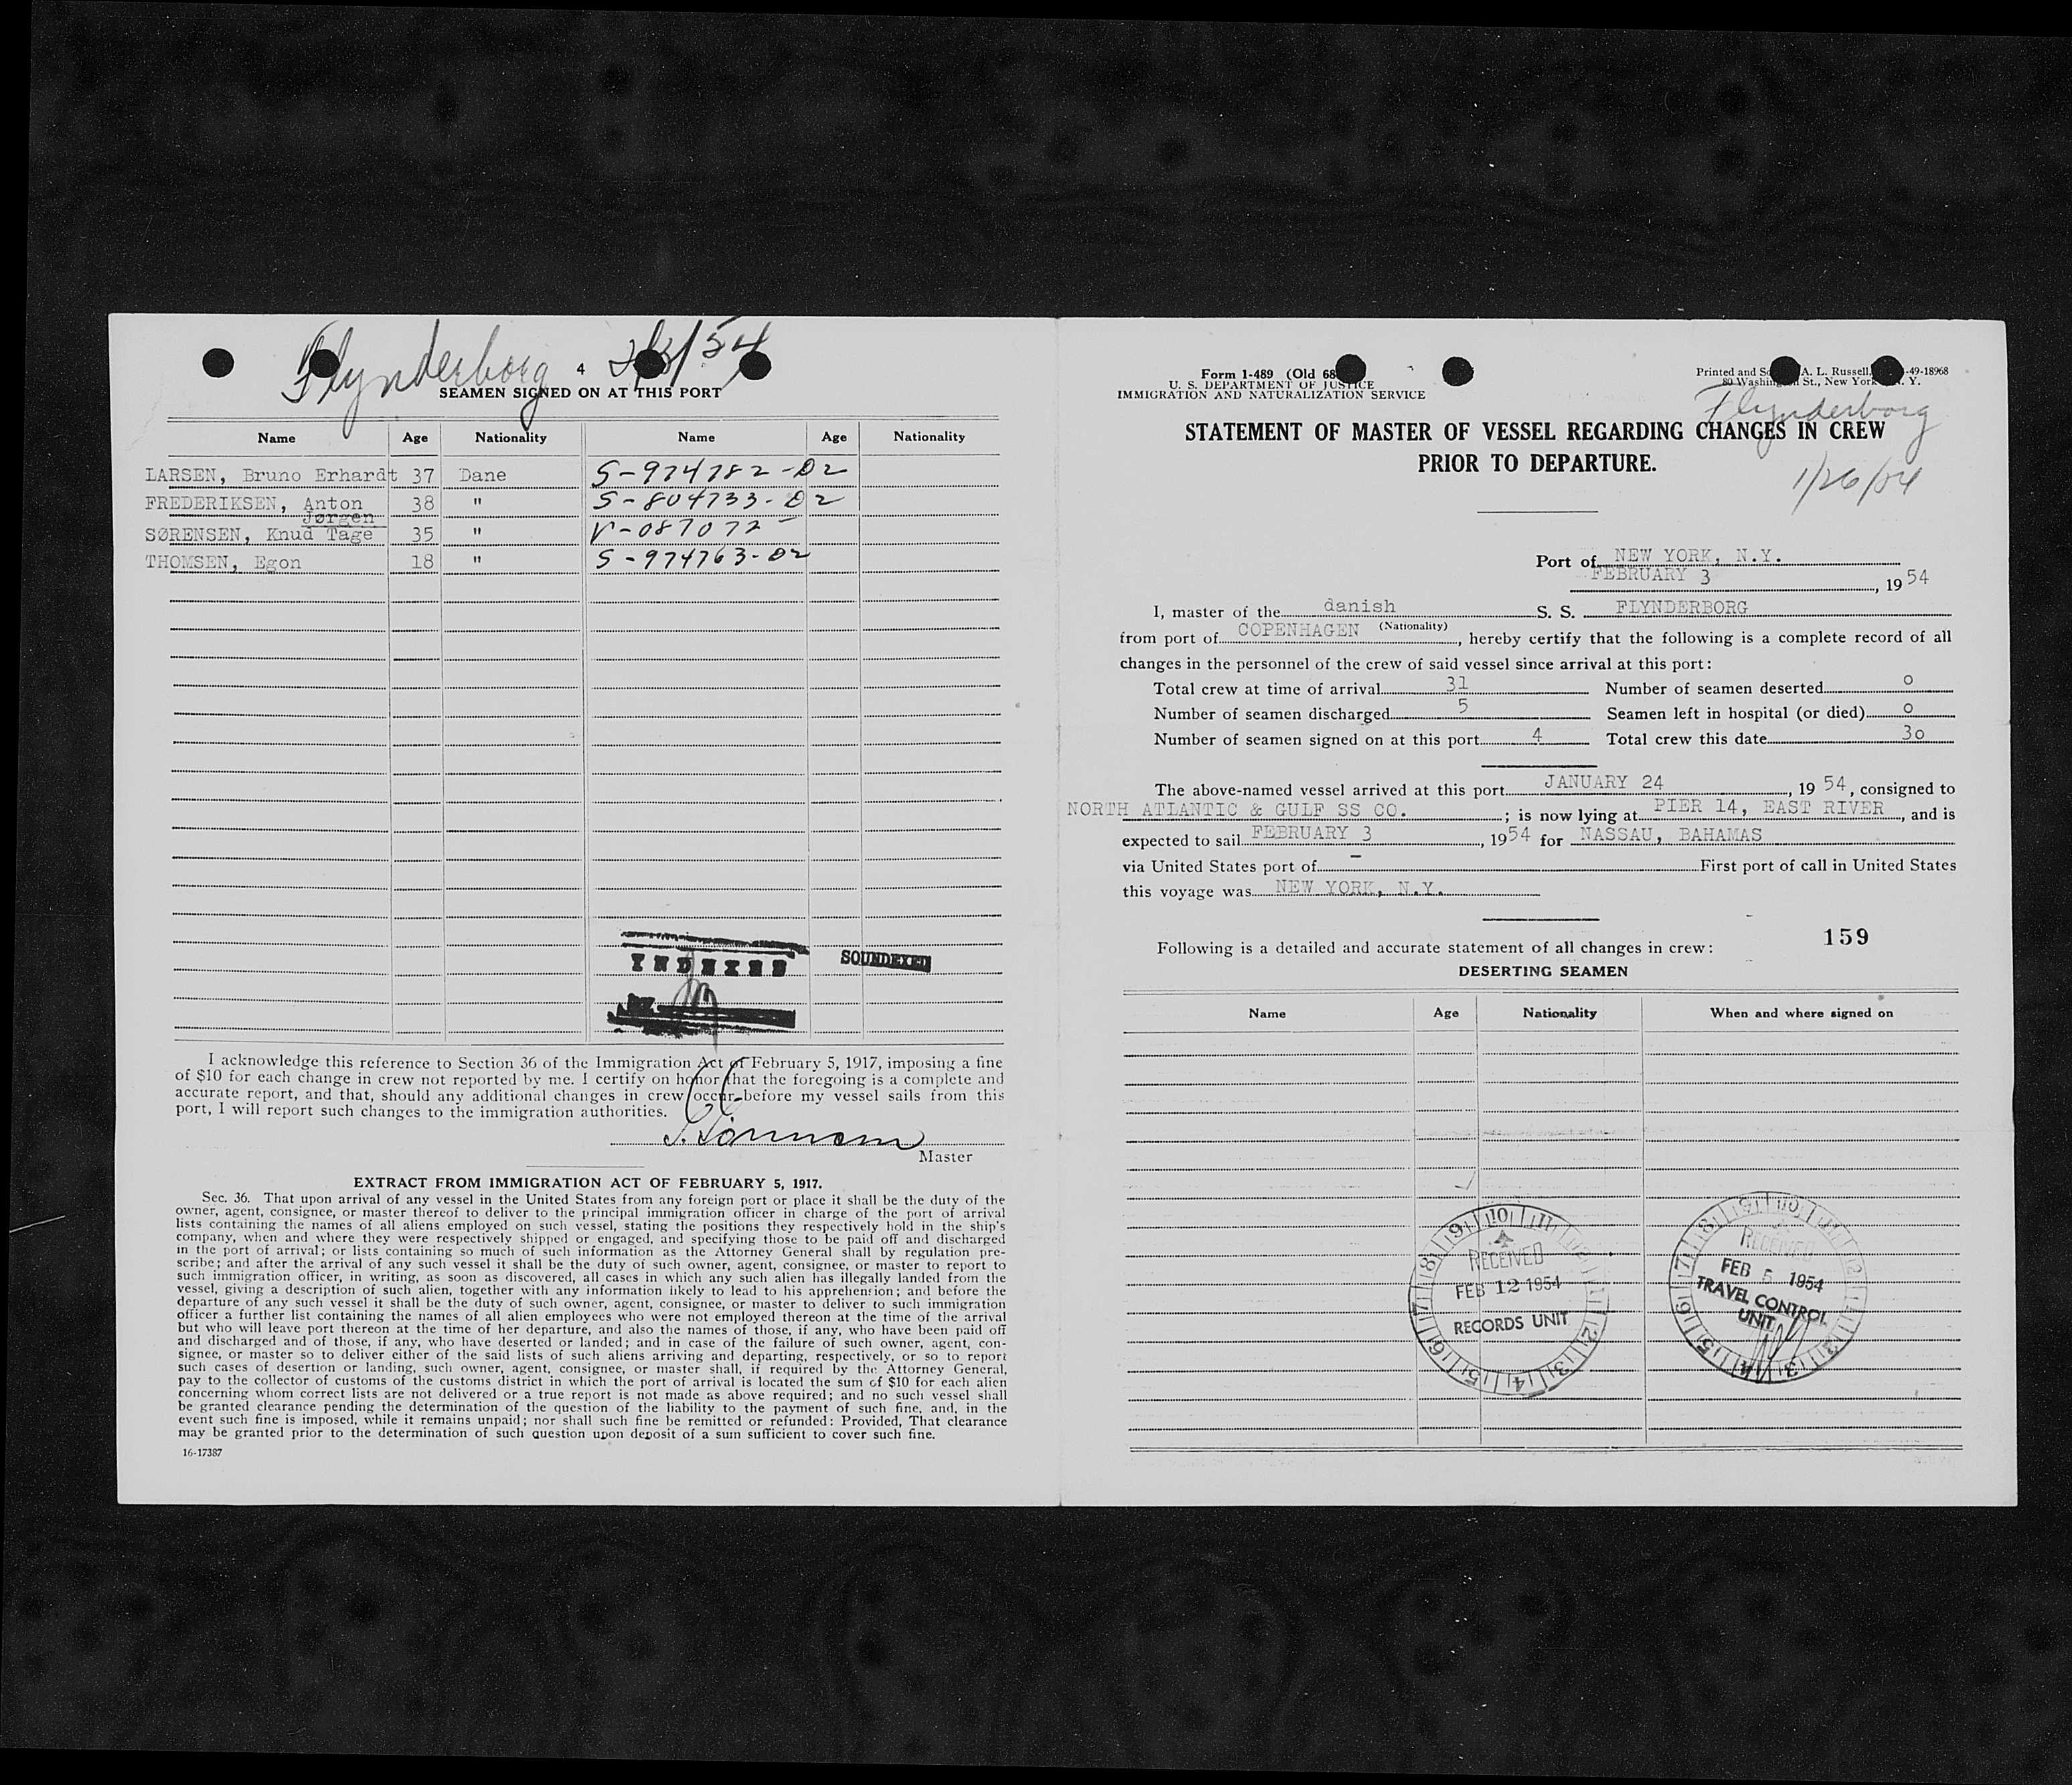 Flynderborg 4 2/3/54
SEAMEN SIGNED ON AT THIS PORT
Name Age Nationality Name Age Nationality
LARSEN, Bruno Erhardt 37 Dane S-974782-D2
FREDERIKSEN, Anton 38 " S-804733-D2
Jørgen
SØRENSEN, Knud Tage 35 " V-087072
THOMSEN, Egon 18 " S-974763-D2
INDEXED SOUNDEXED
I acknowledge this reference to Section 36 of the Immigration Act of February 5, 1917, imposing a fine
of $10 for each change in crew not reported by me. I certify on honor that the foregoing is a complete and
accurate report, and that, should any additional changes in crew occur before my vessel sails from this
port, I will report such changes to the immigration authorities.
Master
EXTRACT FROM IMMIGRATION ACT OF FEBRUARY 5, 1917.
Sec. 36. That upon arrival of any vessel in the United States from any foreign port or place it shall be the duty of the
owner, agent, consignee, or master thereof to deliver to the principal immigration officer in charge of the port of arrival
lists containing the names of all aliens employed on such vessel, stating the positions they respectively hold in the ship's
company, when and where they were respectively shipped or engaged, and specifying those to be paid off and discharged
in the port of arrival; or lists containing so much of such information as the Attorney General shall by regulation pre-
scribe; and after the arrival of any such vessel it shall be the duty of such owner, agent, consignee, or master to report to
such immigration officer, in writing, as soon as discovered, all cases in which any such alien has illegally landed from the
vessel, giving a description of such alien, together with any information likely to lead to his apprehension; and before the
departure of any such vessel it shall be the duty of such owner, agent, consignee, or master to deliver to such immigration
officer a further list containing the names of all alien employees who were not employed thereon at the time of the arrival
but who will leave port thereon at the time of her departure, and also the names of those, if any, who have been paid off
and discharged and of those, if any, who have deserted or landed; and in case of the failure of such owner, agent, con-
signee, or master so to deliver either of the said lists of such aliens arriving and departing, respectively, or so to report
such cases of desertion or landing, such owner, agent, consignee, or master shall, if required by the Attorney General,
pay to the collector of customs of the customs district in which the port of arrival is located the sum of $10 for each alien
concerning whom correct lists are not delivered or a true report is not made as above required; and no such vessel shall
be granted clearance pending the determination of the question of the liability to the payment of such fine, and, in the
event such fine is imposed, while it remains unpaid; nor shall such fine be remitted or refunded: Provided, That clearance
may be granted prior to the determination of such question upon deposit of a sum sufficient to cover such fine.
16-17387
Form 1-489 (Old 68
U. S. DEPARTMENT OF JUSTICE
IMMIGRATION AND NATURALIZATION SERVICE
Printed and So A. L. Russell, -49-18968
80 Washington St., New York N. Y.
Flynderborg
STATEMENT OF MASTER OF VESSEL REGARDING CHANGES IN CREW
PRIOR TO DEPARTURE.
1/26/54
Port of NEW YORK, N.Y.
FEBRUARY 3, 19 54
I, master of the danish S. S. FLYNDERBORG
(Nationality)
from port of COPENHAGEN, hereby certify that the following is a complete record of all
changes in the personnel of the crew of said vessel since arrival at this port:
Total crew at time of arrival 31 Number of seamen deserted o
Number of seamen discharged 5 Seamen left in hospital (or died) o
Number of seamen signed on at this port 4 Total crew this date 3o
The above-named vessel arrived at this port JANUARY 24, 19 54, consigned to
NORTH ATLANTIC & GULF SS CO.; is now lying at PIER 14, EAST RIVER, and is
expected to sail FEBRUARY 3, 1954 for NASSAU, BAHAMAS
via United States port of - First port of call in United States
this voyage was NEW YORK, N.Y.
159
Following is a detailed and accurate statement of all changes in crew:
DESERTING SEAMEN
Name Age Nationality When and where signed on
RECEIVED
FEB 12 1954
RECORDS UNIT
RECEIVED
FEB 5 1954
TRAVEL CONTROL
UNIT